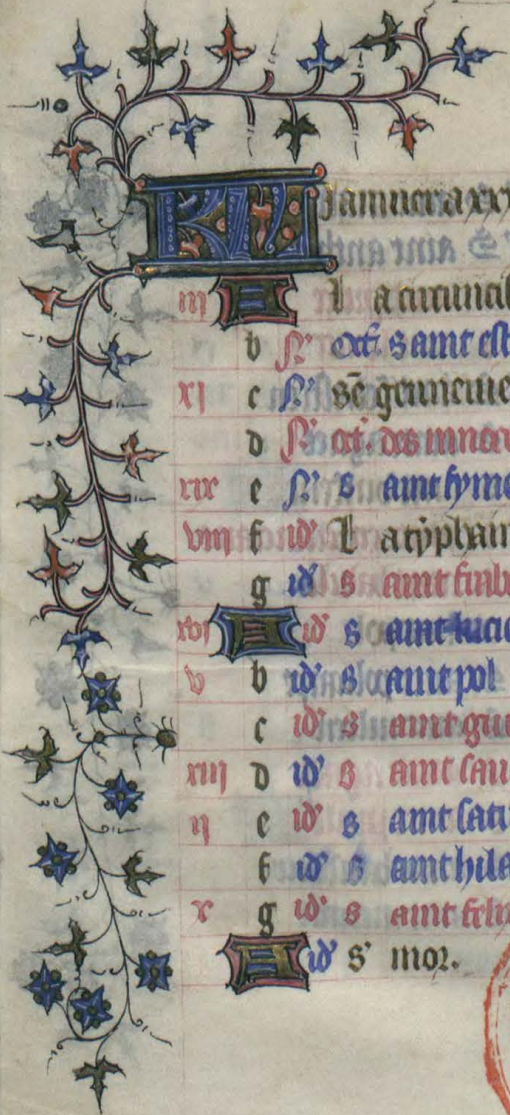 KL Januier a xxx
iii A La circuncis
b N' oct. saint est
xi c N' sē geneuie
d N' oct. des innoc
xix e N' saint syme
viii f id' La typhain
g id' saint
xvi A id' saint lucie
v b id' saint pol
c id' saint gui
xiii d id' saint sau
ii e id' saint satu
f id' saint hila
x g id' saint felix
A id' s' mor.